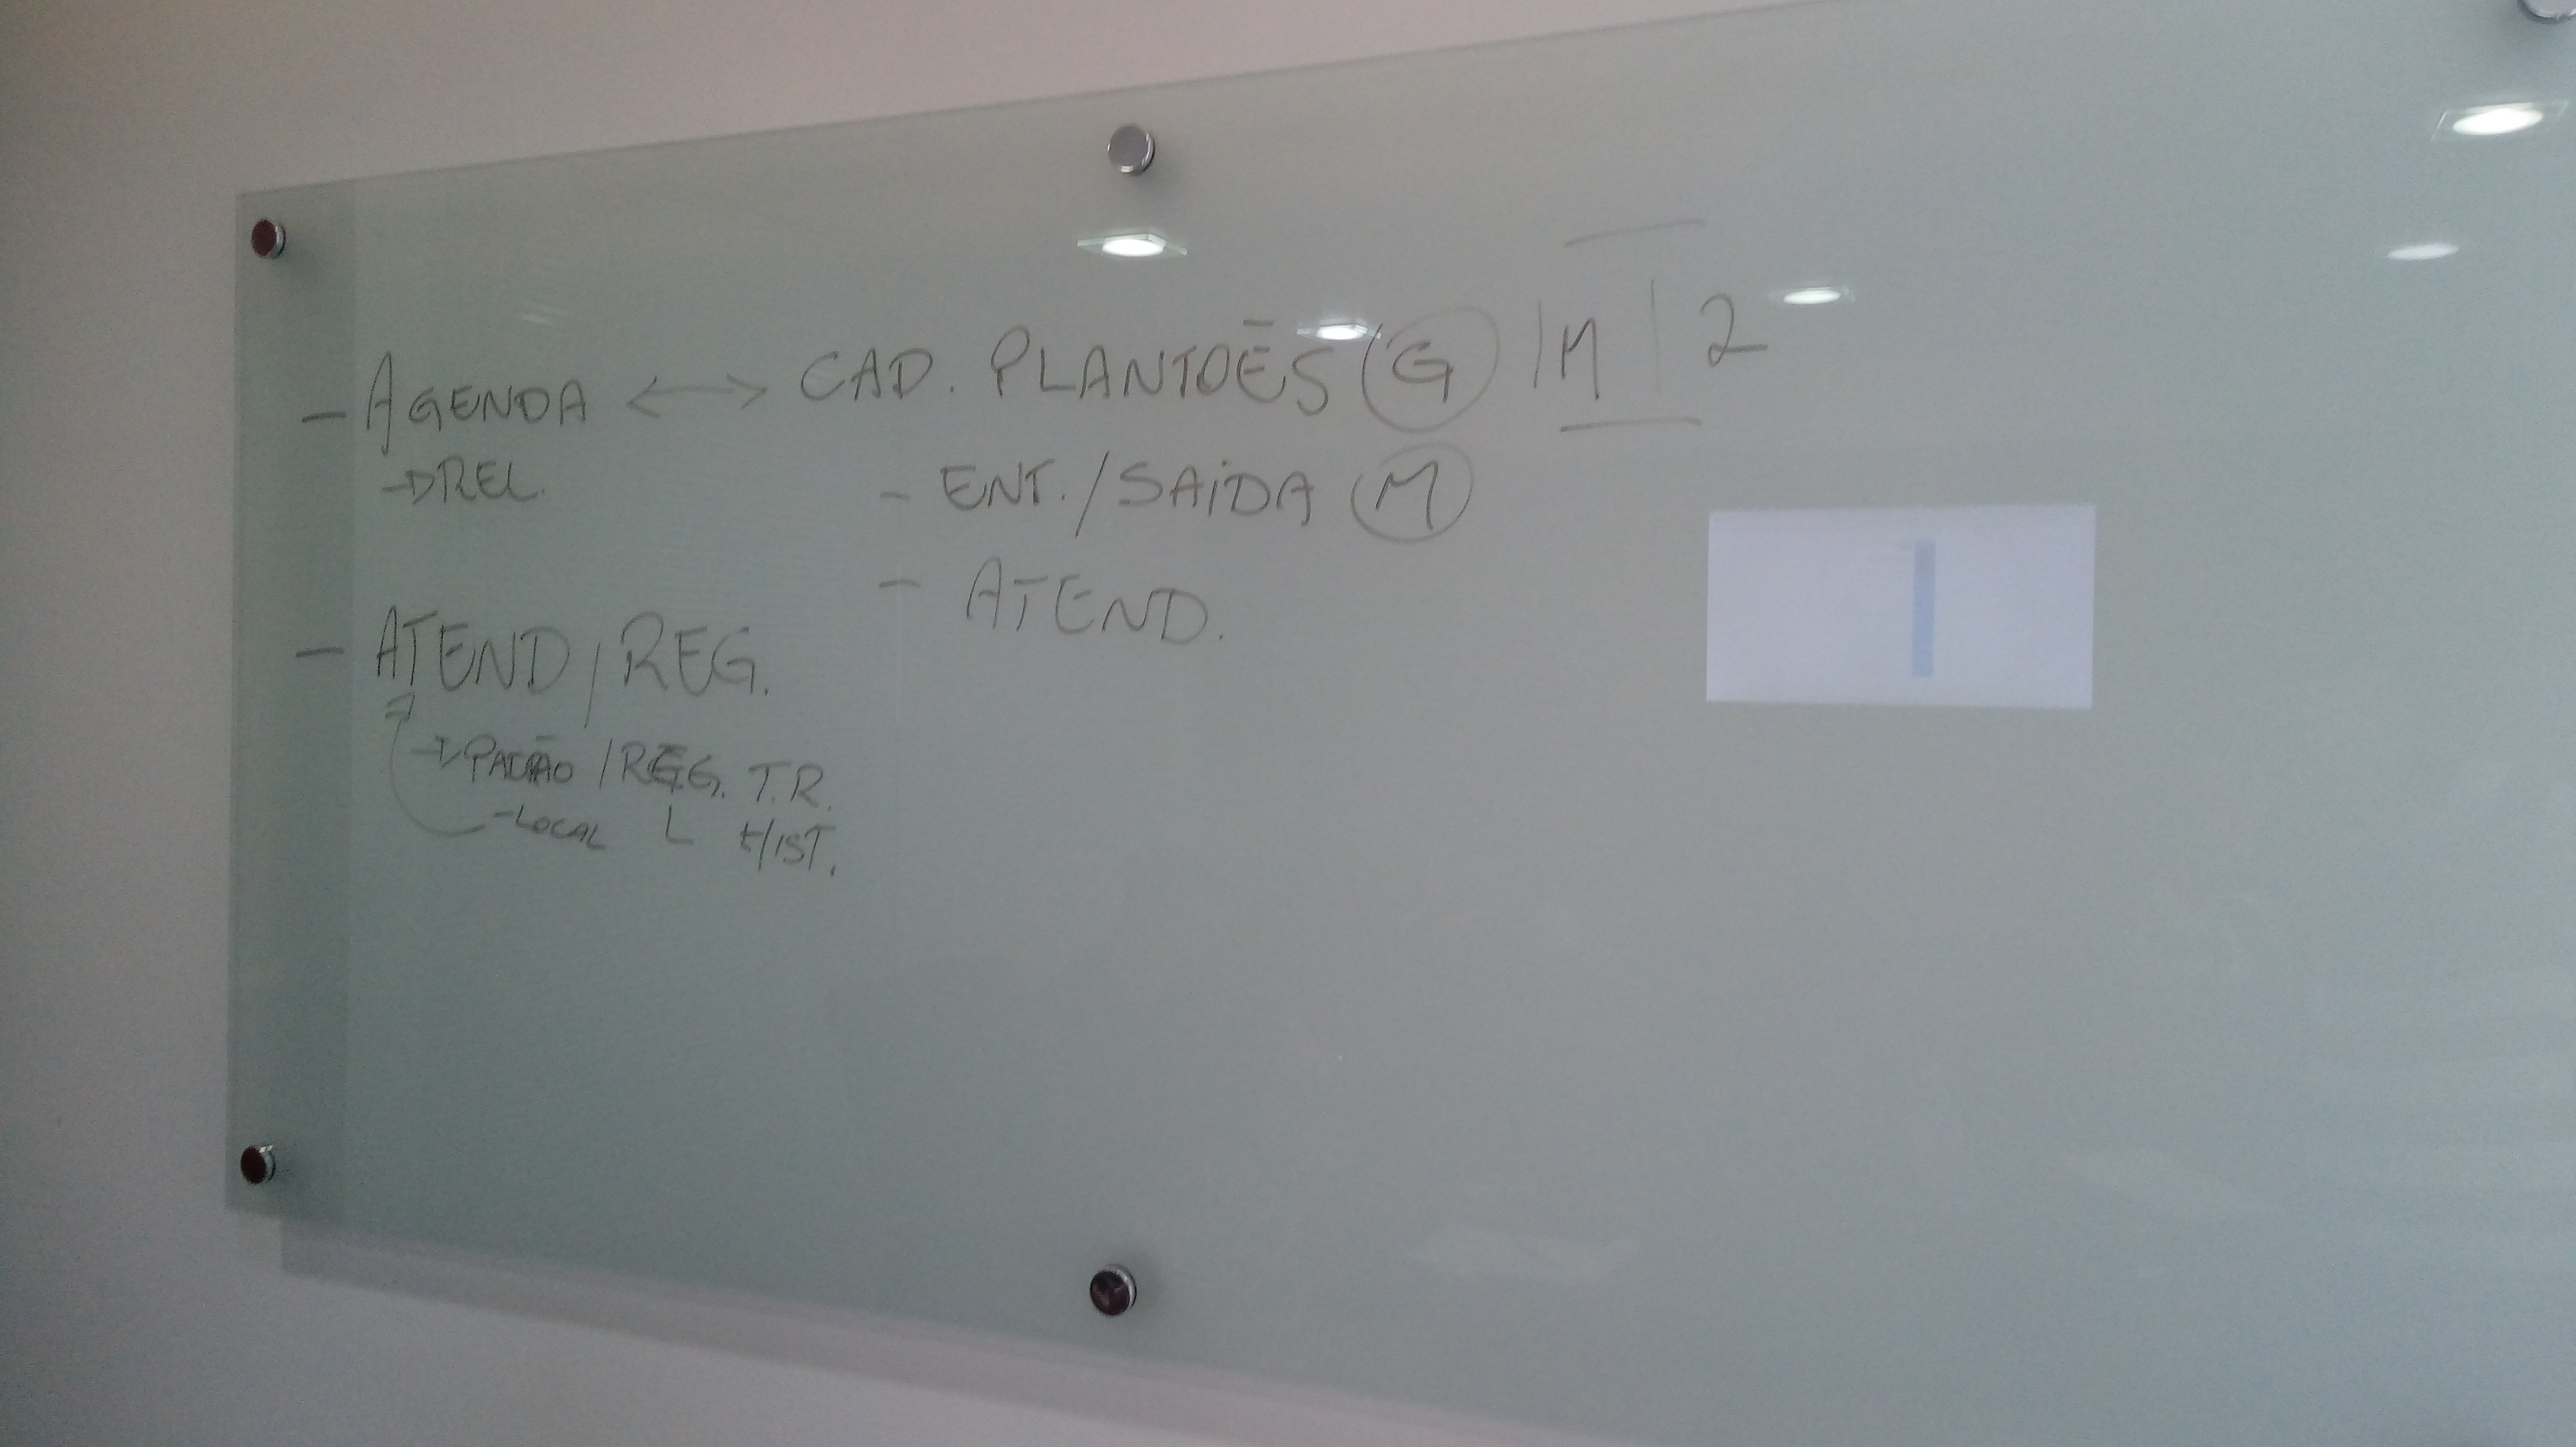 - AGENDA <-> CAD. PLANTOES G |M| 2
→ REL.
- ENT./SAÍDA M
- ATEND.
- ATEND/REG.
→ /REG. T.R.
- LOCAL L HIST.